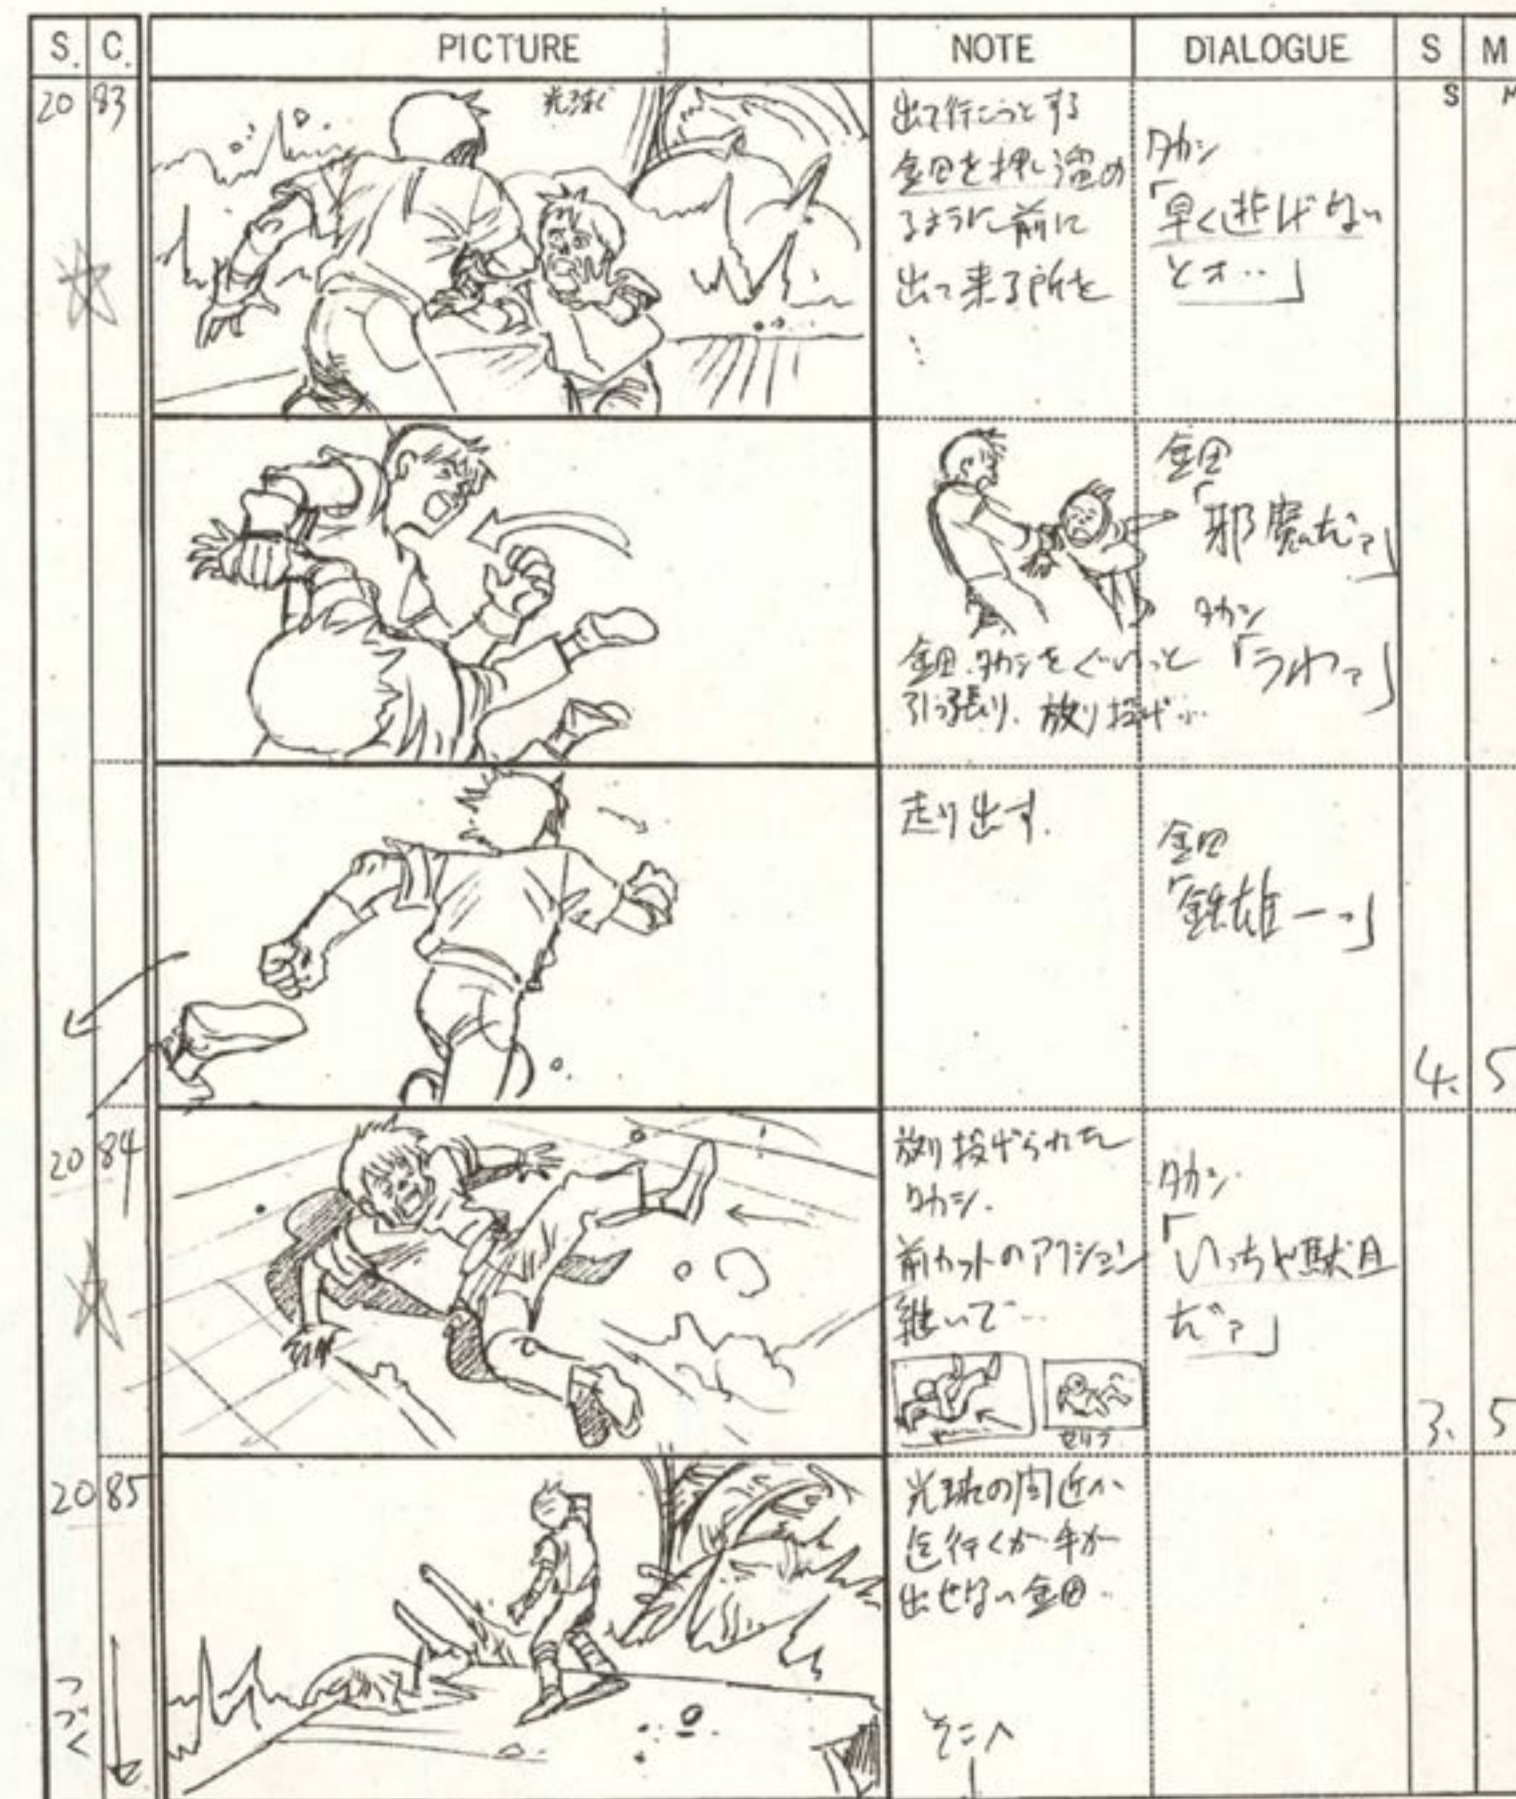 S. C. PICTURE NOTE DIALOGUE S M
S M
20 83
光球
出て行こうとする
金田を押し溜め
るように前に
出て来る所を
⋮
タカシ
「早く逃げない
とォ…」
金田
「邪魔だァ」
タカシ
「うわァ」
金田、タカシをぐいっと
引っ張り、放り投げ…
走り出す.
金田
「鉄雄ーっ」
4. 5
20 84
放り投げられた
タカシ.
前カットのアクション
継いで…
セリフ
タカシ
「いっちゃ駄目
だァ」
3. 5
20 85
光球の間近へ
迄行くが手が
出せない金田…
そこへ
つづく